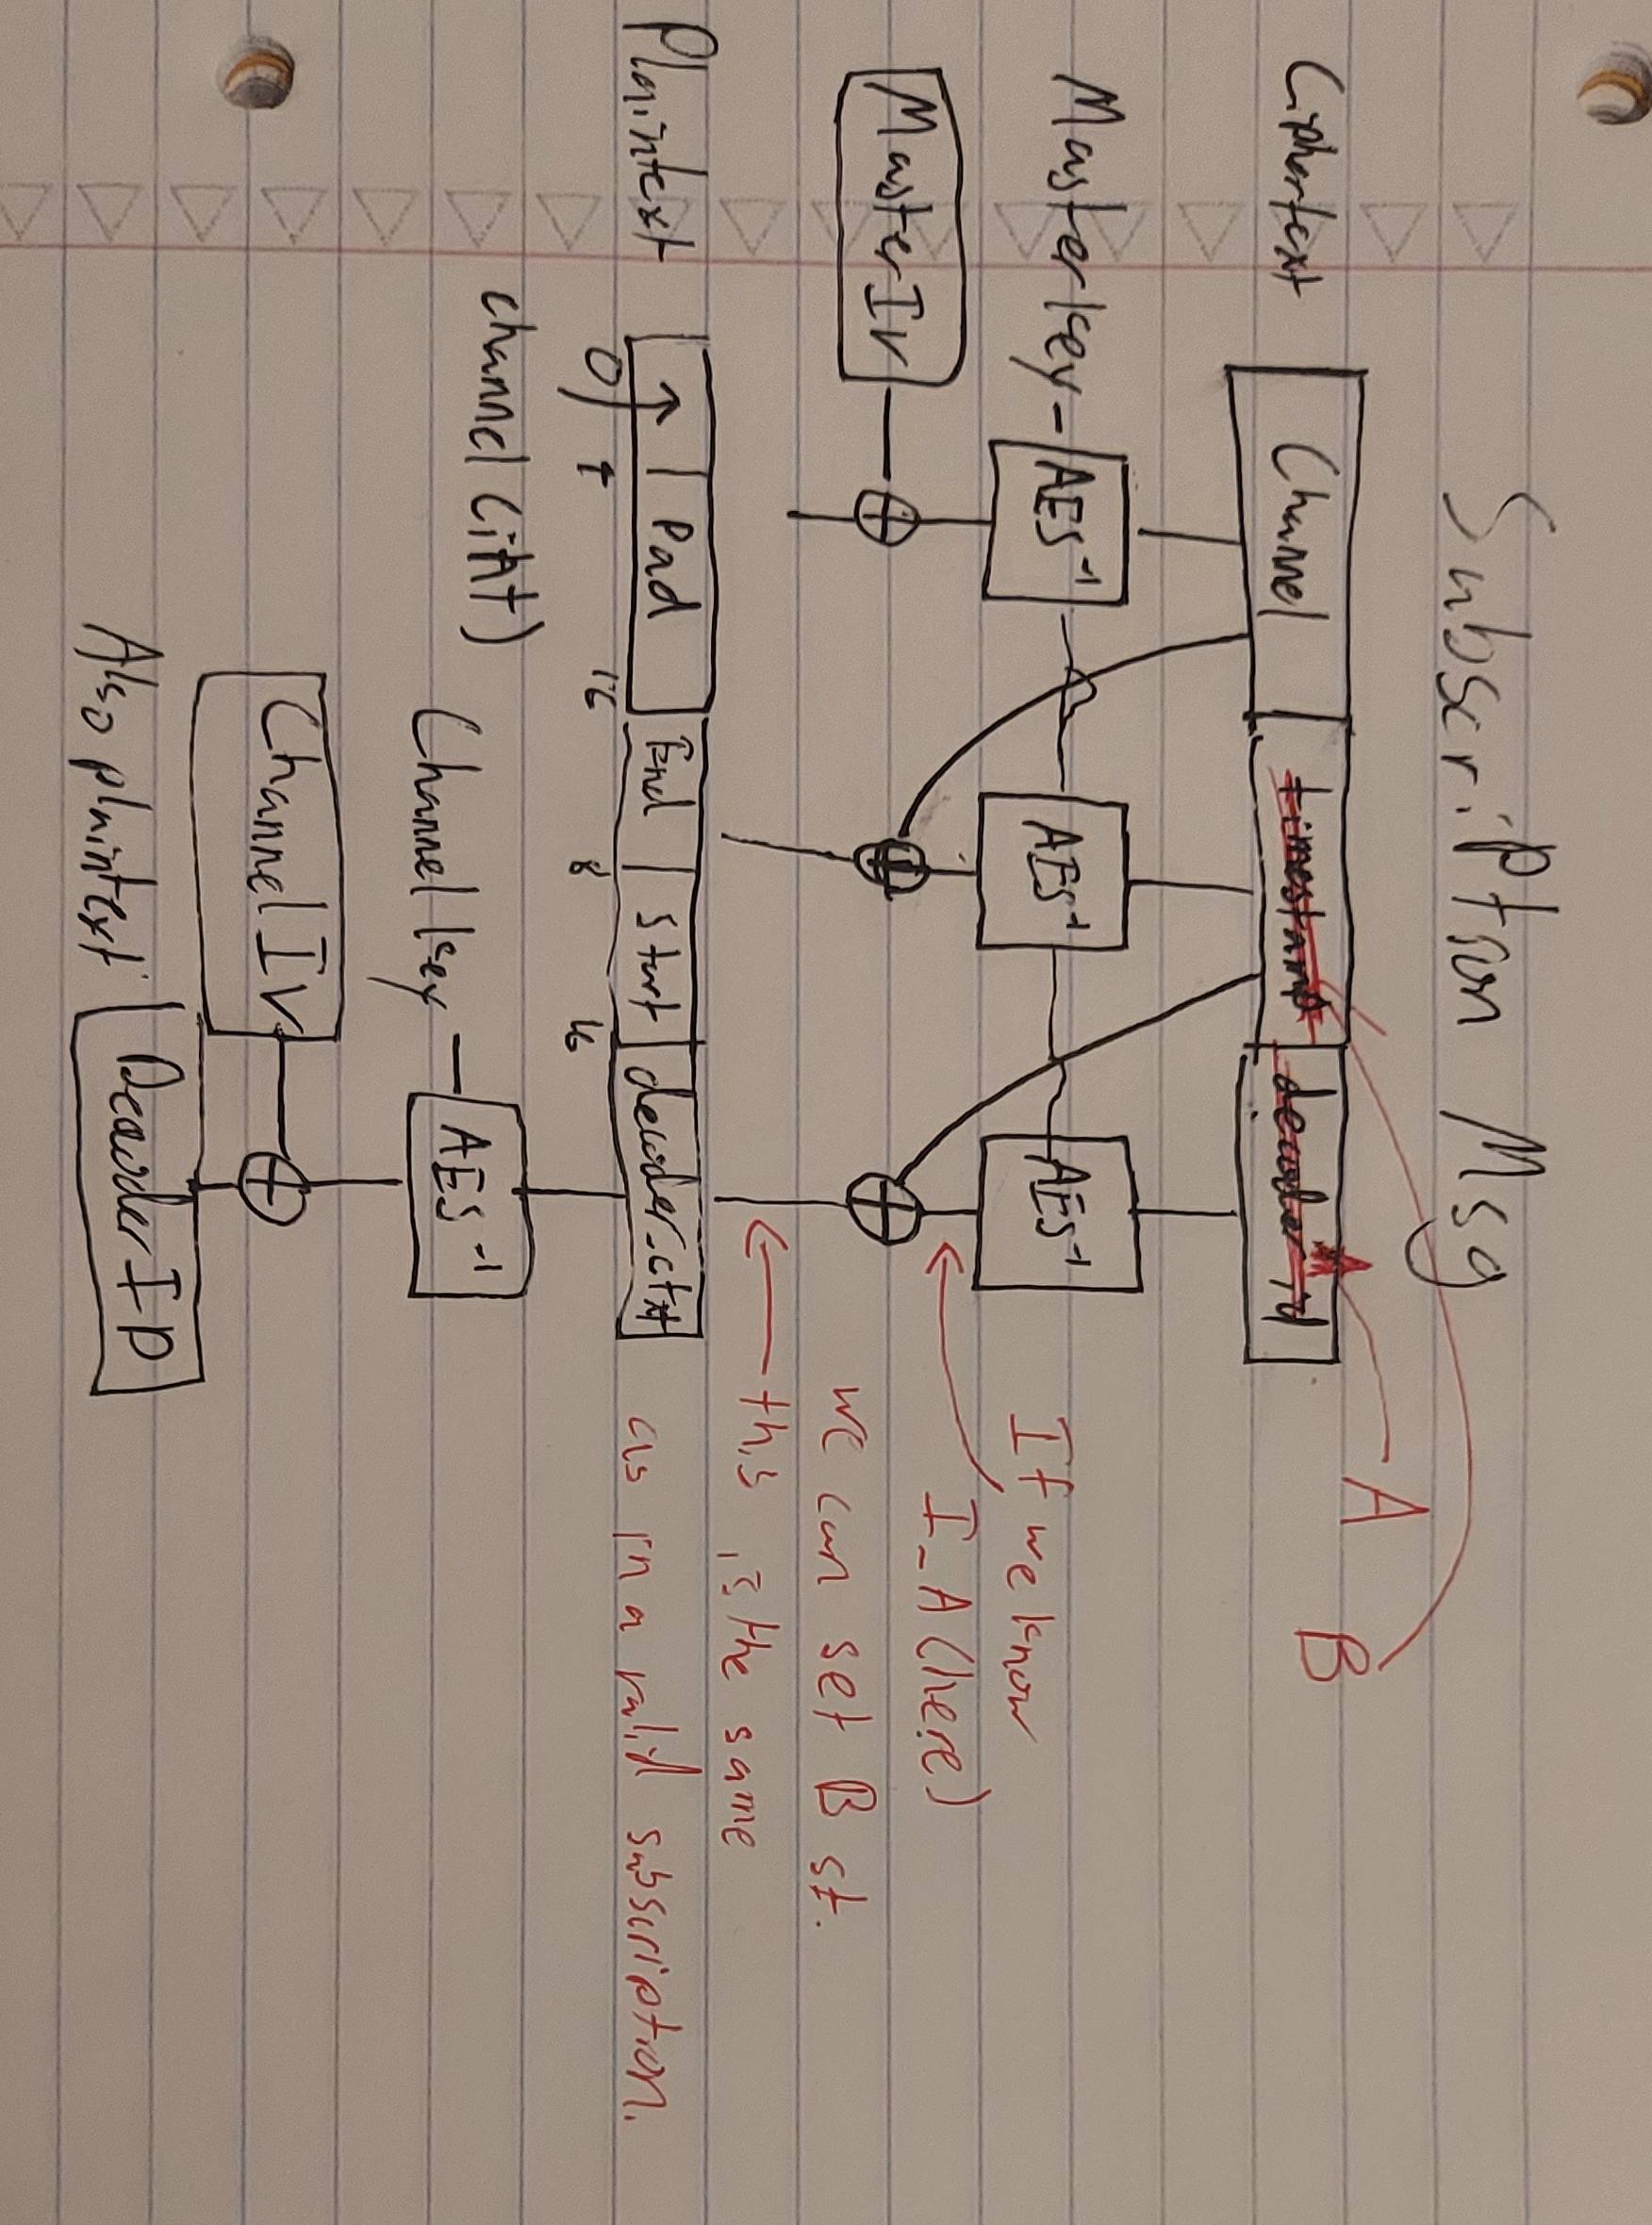 Subscription Msg
A
B
Ciphertext Channel timestamp decoder_id
Master key AES⁻¹ AES⁻¹ AES⁻¹
If we know
I_A (here)
Master IV
we can set B st.
this is the same
Plaintext Pad End Start decoder_ctxt
as in a valid subscription.
0 4 16 8 16
channel (int)
Channel key AES⁻¹
Channel IV
Also plaintext Decoder ID